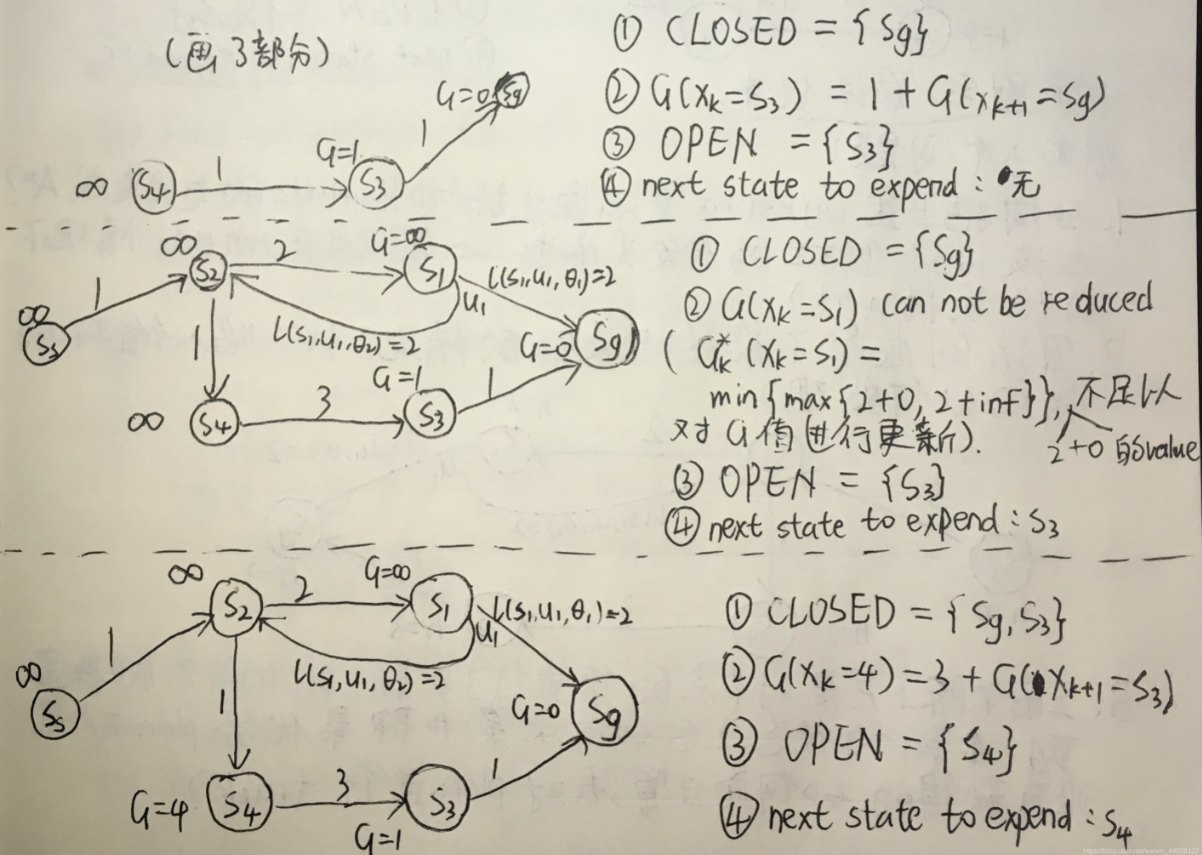 (画了部分)
G=0 Sg
1
G=1
∞ S4 1 S3
① CLOSED = {Sg}
② G(xk=S3) = 1 + G(xk+1=Sg)
③ OPEN = {S3}
④ next state to expend : 无
∞ S2 2 G=∞ S1
L(s1,u1,θ1)=2
u1
1
∞ Ss
L(s1,u1,θ2)=2
1
G=0 Sg
G=1
∞ S4 3 S3 1
① CLOSED = {Sg}
② G(xk=S1) can not be reduced
( Gk*(xk=S1) =
min{max{2+0, 2+inf}}, 不足以
对G值进行更新).
2+0 的value
③ OPEN = {S3}
④ next state to expend : S3
∞ S2 2 G=∞ S1
L(s1,u1,θ1)=2
u1
1
∞ Ss
L(s1,u1,θ2)=2
1
G=0 Sg
G=4 S4 3 S3 1
G=1
① CLOSED = {Sg, S3}
② G(xk=4) = 3 + G(xk+1=S3)
③ OPEN = {S4}
④ next state to expend : S4